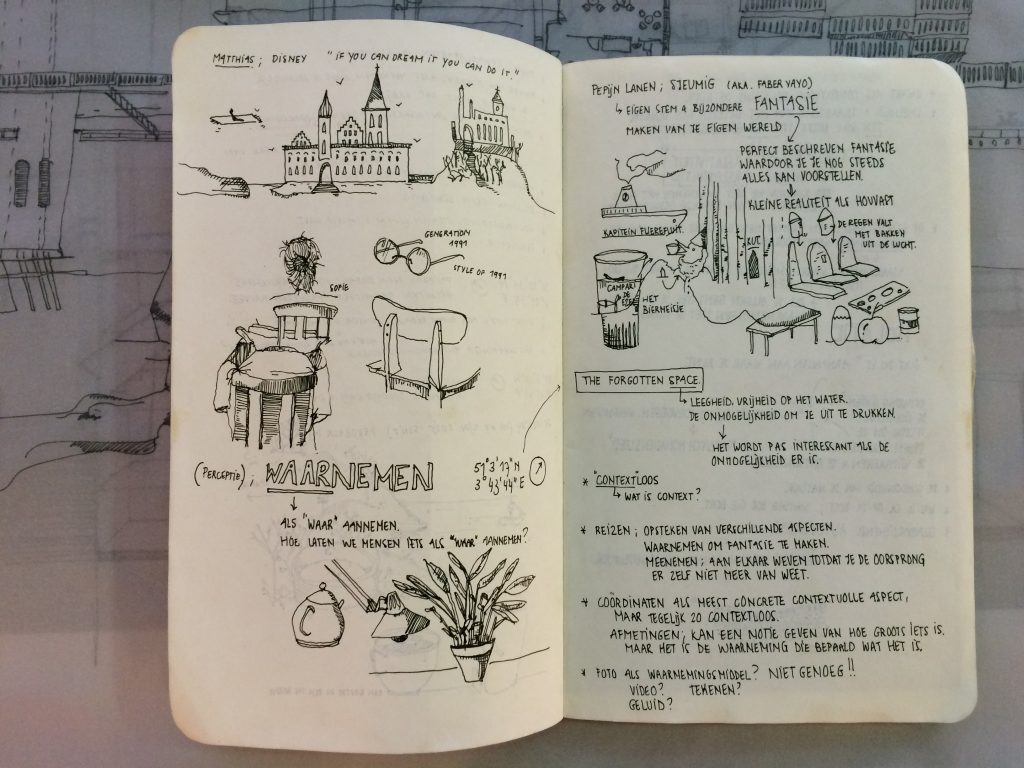 MATTHIAS; DISNEY "IF YOU CAN DREAM IT YOU CAN DO IT."
GENERATION
1991
STYLE OF 1991
SOFIE
(PERCEPTIE); WAARNEMEN
51° 3' 17" N
3° 43' 44" E
ALS "WAAR" AANNEMEN.
HOE LATEN WE MENSEN IETS ALS "WAAR" AANNEMEN?
PEPIJN LANEN; SJEUMIG (AKA. FABER YAYO)
EIGEN STEM & BIJZONDERE FANTASIE
MAKEN VAN JE EIGEN WERELD
PERFECT BESCHREVEN FANTASIE
WAARDOOR JE JE NOG STEEDS
ALLES KAN VOORSTELLEN.
KLEINE REALITEIT ALS HOUVAST
KAPITEIN FLIEREFLUIT.
DE REGEN VALT
MET BAKKEN
UIT DE LUCHT.
KUT
CAMPARI
HET
BIERMEISJE
THE FORGOTTEN SPACE.
LEEGHEID. VRIJHEID OP HET WATER.
DE ONMOGELIJKHEID OM ZE UIT TE DRUKKEN.
HET WORDT PAS INTERESSANT ALS DE
ONMOGELIJKHEID ER IS.
* "CONTEXTLOOS
WAT IS CONTEXT?
* REIZEN; OPSTEKEN VAN VERSCHILLENDE ASPECTEN.
WAARNEMEN OM FANTASIE TE MAKEN.
MEENEMEN; AAN ELKAAR WEVEN TOTDAT JE DE OORSPRONG
ER ZELF NIET MEER VAN WEET.
* COÖRDINATEN ALS MEEST CONCRETE CONTEXTVOLLE ASPECT,
MAAR TEGELIJK ZO CONTEXTLOOS.
AFMETINGEN; KAN EEN NOTIE GEVEN VAN HOE GROOTS IETS IS.
MAAR HET IS DE WAARNEMING DIE BEPAALD WAT HET IS.
* FOTO ALS WAARNEMINGSMIDDEL? NIET GENOEG!!
VIDEO? TEKENEN?
GELUID?